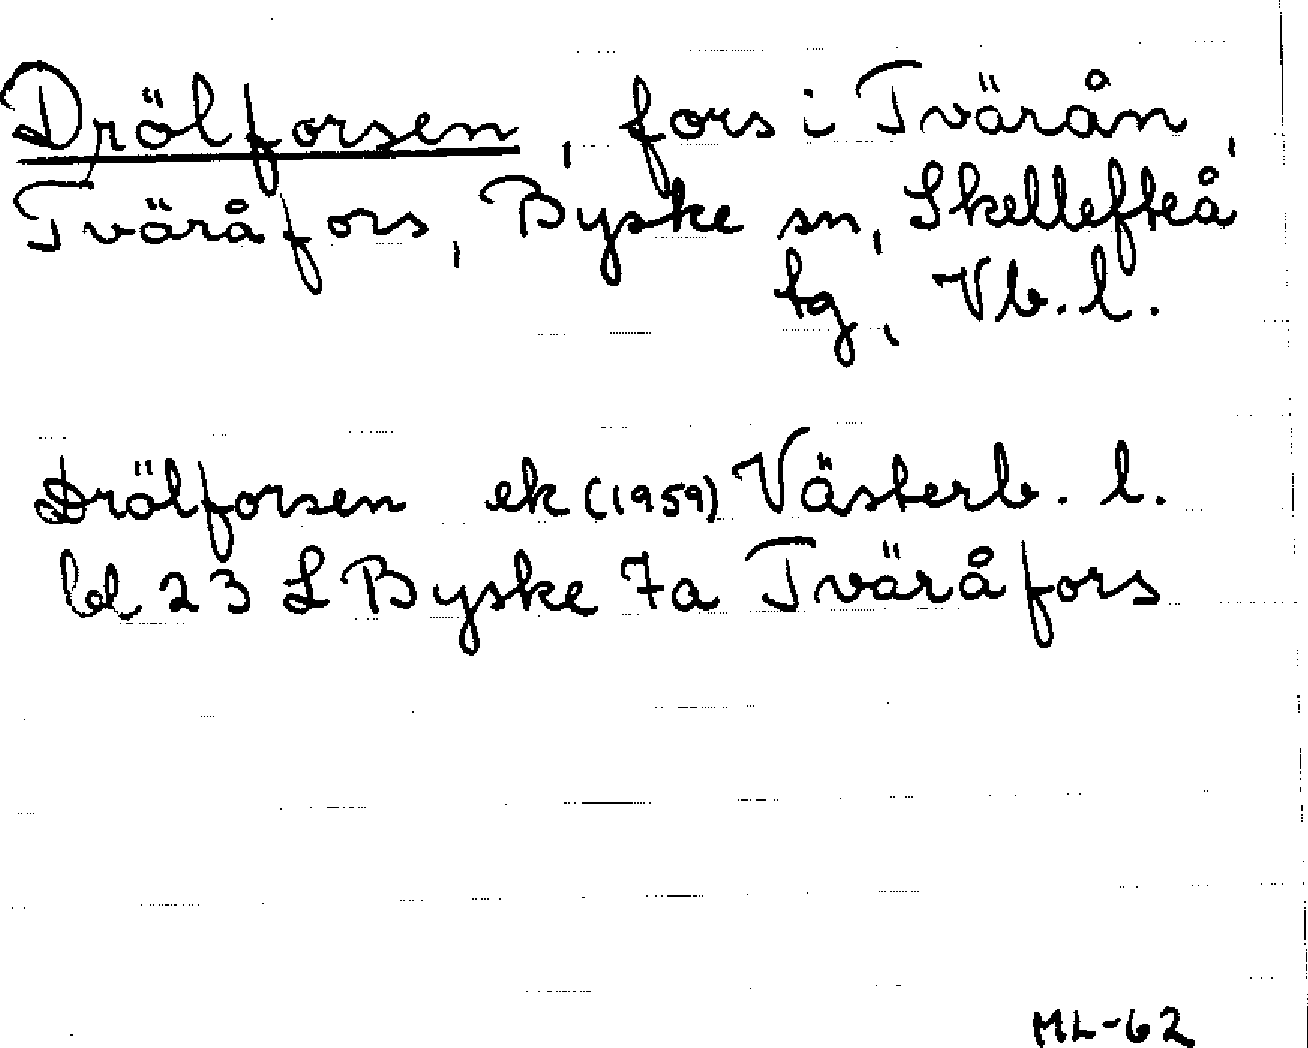 Drölforsen, fors i Tvärån,
Tväråfors, Byske sn, Skellefteå
tg, Vb. l.
Drölforsen ek (1959) Västerb. l.
bl 23 L Byske 7a Tväråfors
ML-62